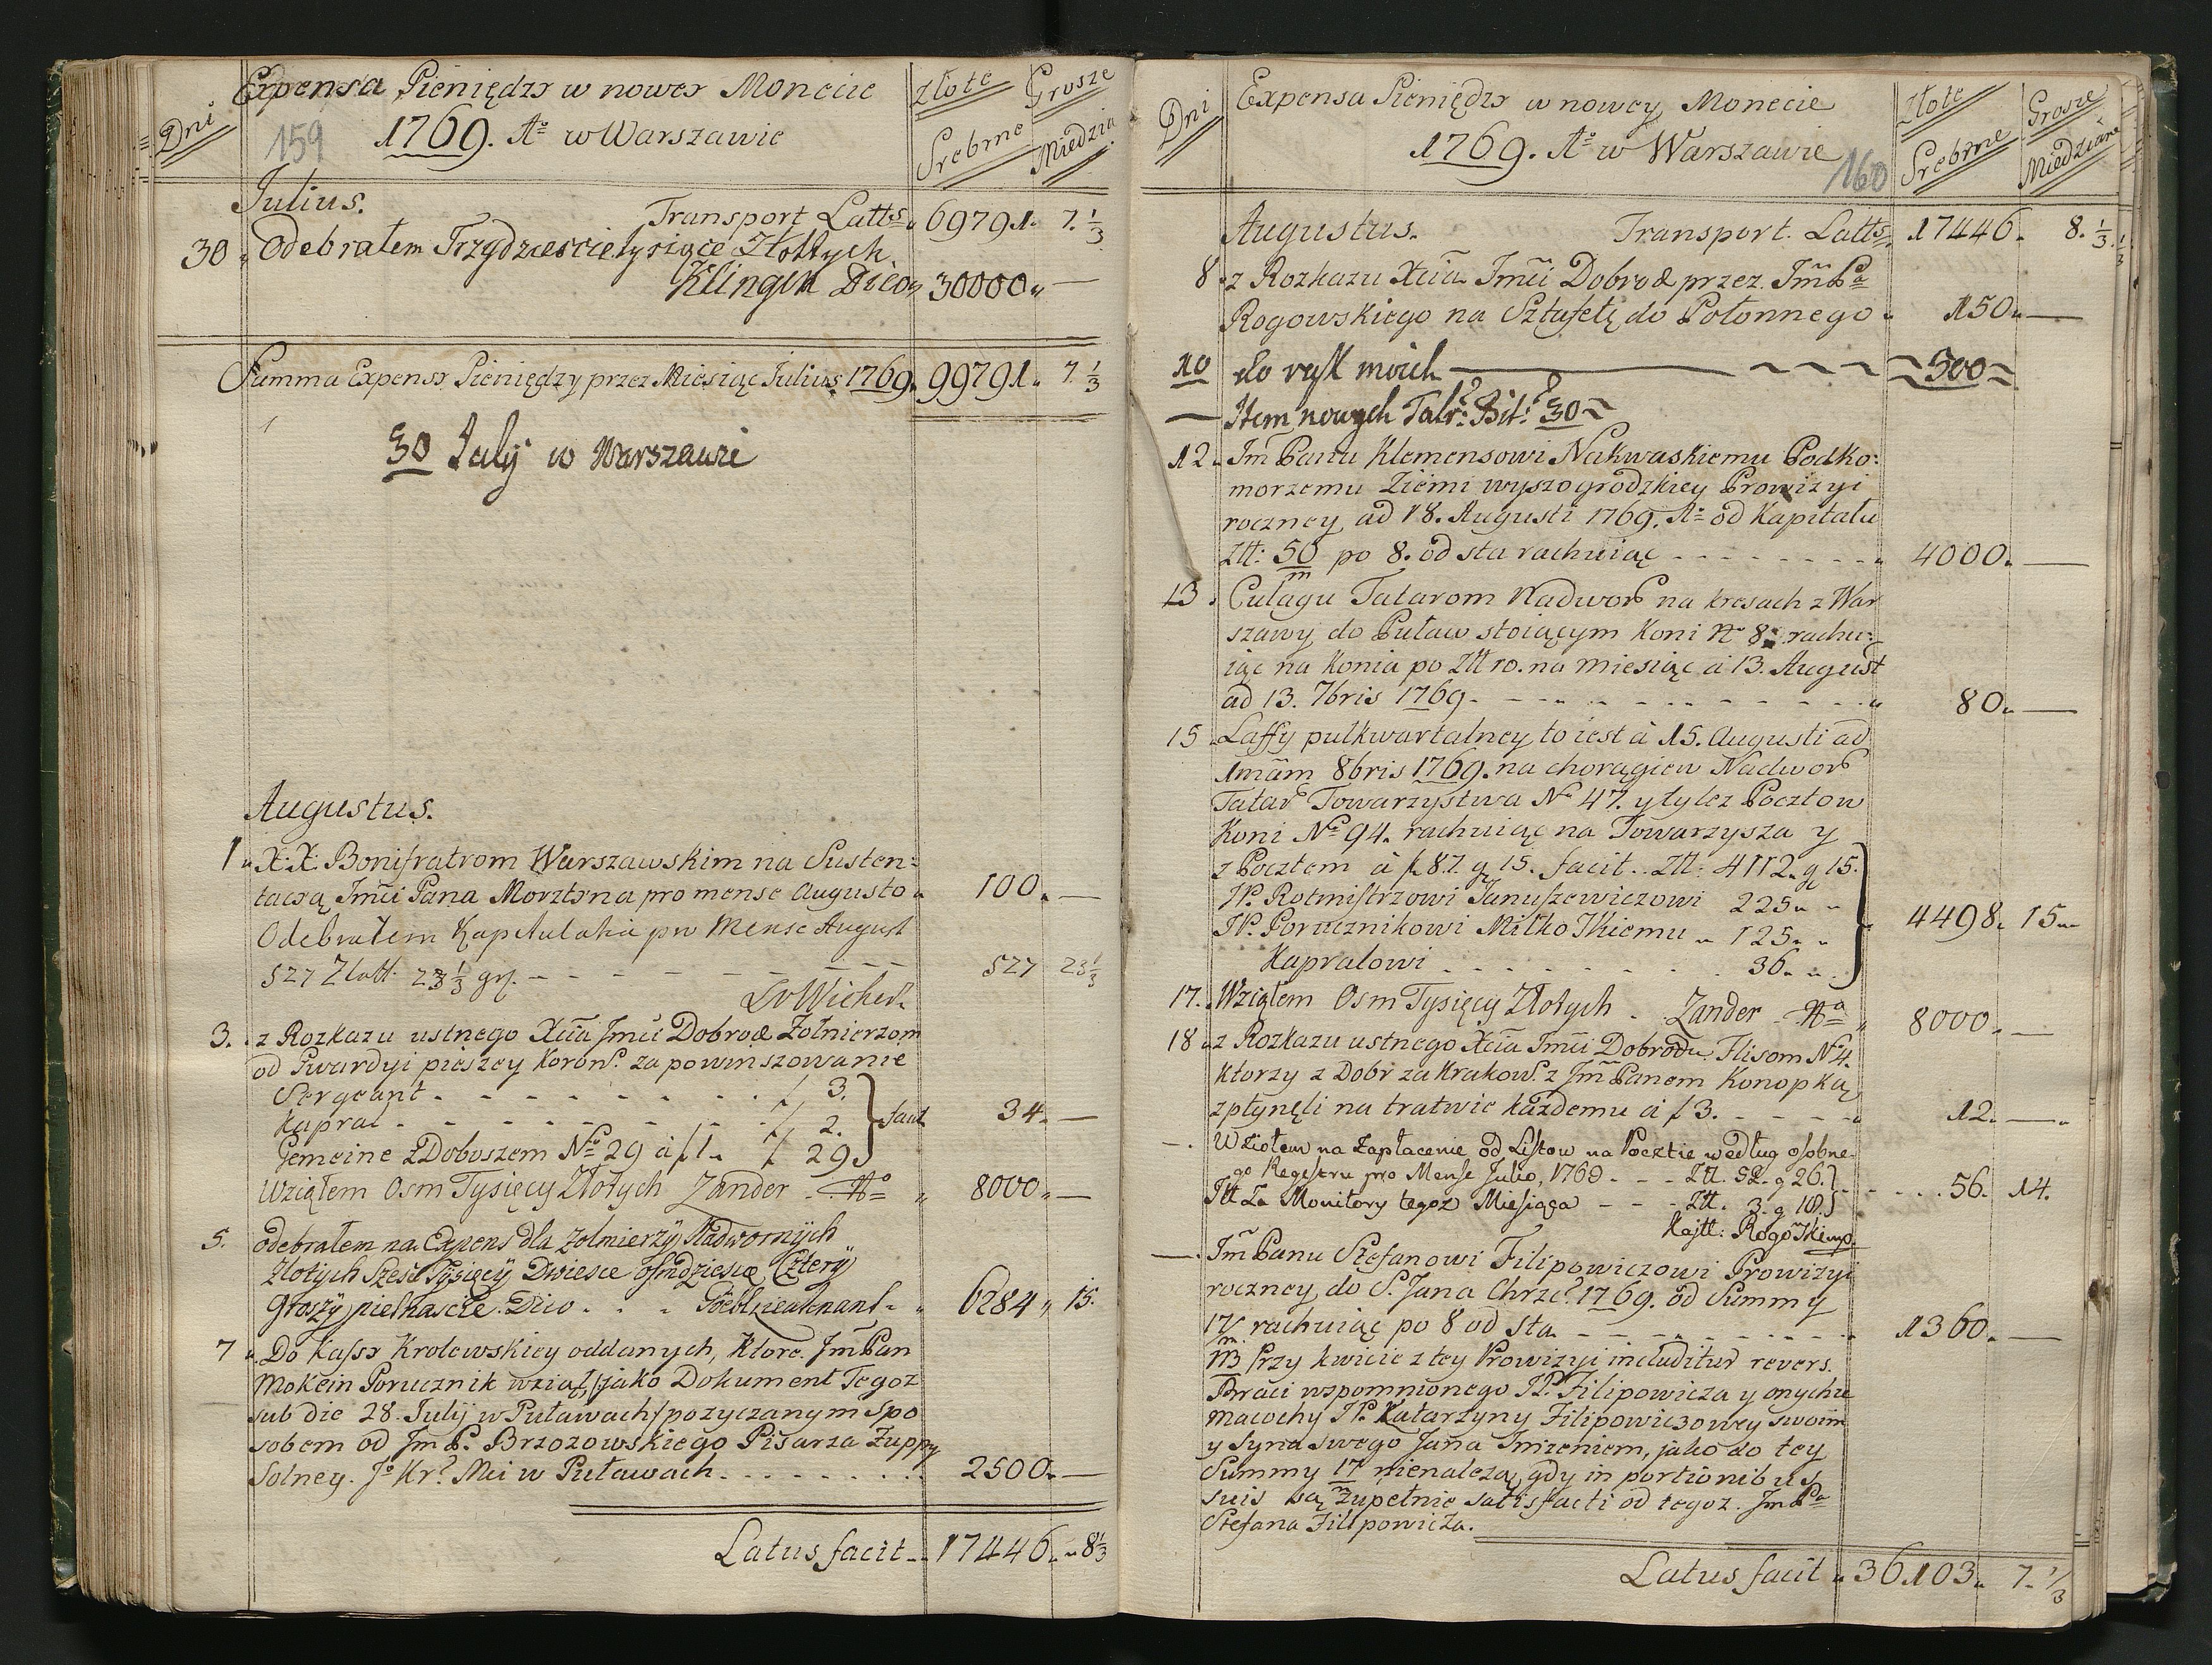 Expensa Pieniędzy w nowey Monecie
Dni
159
1769. Aº w Warszawie
Złote Srebrne
Grosze Miedzia
Julius.
Transport Latts 69791. 7. 1/3
30 Odebrałem Trzydziescie tysiące Złottych
Klingen Dico 30000
Summa Expensy Pieniędzy przez Miesiąc Julius 1769. 99791. 7. 1/3
30 July w Warszawie
Augustus.
1 X: X: Bonifratrom Warszawskim na Susten-
tacyą Jmći Pana Morztyna pro mense Augusto 100.
Odebrałem pro Mense August
527 Zlott. 23 1/3 gr. 527 23 1/3
3. z Rozkazu ustnego Xcia Jmci Dobrod Zołnierzom
od Gwardyi pieszey Koron. za powinszowanie
Sergeant 3.
Kapral 2. facit 34.
Gemeine z Doboszem Nº 29 á f 1. f 29
Wziąłem Osm Tysięcy Złotych Zander 8000.
5. odebrałem na Expens dla zolmierzÿ Nadwornÿch
Złotÿch Szesc Tÿsięcÿ Dwiesce osmdziesiąt Czterÿ
Groszÿ pietnascie. Dico 6284 15.
7 Do Kassy Krolewskiey oddanych, Ktore Jm Pan
Mokein Porucznik wziął, /jako Dokument Tegoz
sub die 28. Julij w Puławach/ pozyczanym spo
sobem od Jm P. Brzozowskiego Pisarza Zuppy
Solney. Jº Kr. Mci w Puławach 2500.
Latus facit 17446. 8 1/3
Dni
Expensa Pieniędzy w nowey Monecie
1769. Aº w Warszawie
160
Złote Srebrne
Grosze Miedziane
Augustus. Transport. Latts 17446. 8. 1/3
8. z Rozkazu Xcia Jmći Dobrod przez Jm Pa
Rogowskiego na Sztafetę do Połonnego 150.
10 do rąk moich 500
Item nowych Talr: Bit: 30
12. Jm Panu Klemensowi Nakwaskiemu Podko:
morzemu Ziemi wyszogrodzkiey Prowizyi
roczney, ad 18. Augusti 1769. Aº od Kapitału
Ztt: 50 m po 8. od sta rachuiąc 4000.
13. Culagu Tatarom Nadwor na kresach z War
szawy do Puław stoiącym Koni Nº 8. rachu:
iąc na Konia po Ztt 10. na miesiąc á 13. August
ad 13. 7bris 1769. 80.
15 Laffy pulkwartalney to iest á 15. Augusti ad
1mam 8bris 1769. na chorągiew Nadwor
Tatar Towarzystwa Nº 47. y tylez Pocztow
Koni Nº 94. rachuiąc na Towarzysza y
z Pocztem á f 87. g 15. facit.. Ztt: 4112. g 15.
JP. Rotmistrzowi Januszewiczowi 225
JP. Porucznikowi Miłkoskiemu 125. 4498. 15
Kapralowi 36.
17. Wziąłem Osm Tysięcy Złotych. Zander 8000.
18 z Rozkazu ustnego Xcia Jmći Dobrodu. Flisom Nº 4.
ktorzy z Dobr za Krakow. z Jm Panem Konopką
zpłynęli na tratwie każdemu á f 3. 12.
Wziołem na Zapłacenie od Listow na Poczcie według osobne-
go Regestru pro Mense Julio, 1769 Ztt. 52. g 26.
Itt Za Monitory tegoz Miesiąca Ztt. 3. g 18. 56. 14.
Kajtt: Rogoskimp.
Jm Panu Stefanowi Filipowiczowi Prowizyi
roczney, do S. Jana Chrzc. 1769. od Summy
17/m. rachuiąc po 8 od sta 1360.
NB Przy kwicie z tey Prowizyi includitur revers.
Braci wspomnionego JP. Filipowicza y onychze
Macochy JP. Katarzyny Filipowiczowey swoim
y Syna swego Jana Imieniem, jako do tey
Summy 17 m nienalezą, gdy in portionibus
suis są zupełnie satisfacti od tegoz. Jm Pa
Stefana Filipowicza.
Latus facit 36103. 7. 1/3